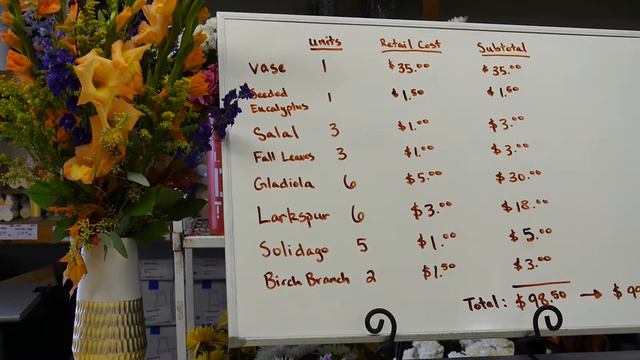 units Retail Cost Subtotal
Vase 1 $35.00 $35.00
Seeded Eucalyptus 1 $1.50 $1.50
Salal 3 $1.00 $3.00
Fall Leaves 3 $1.00 $3.00
Gladiola 6 $5.00 $30.00
Larkspur 6 $3.00 $18.00
Solidago 5 $1.00 $5.00
Birch Branch 2 $1.50 $3.00
Total: $98.50 → $9